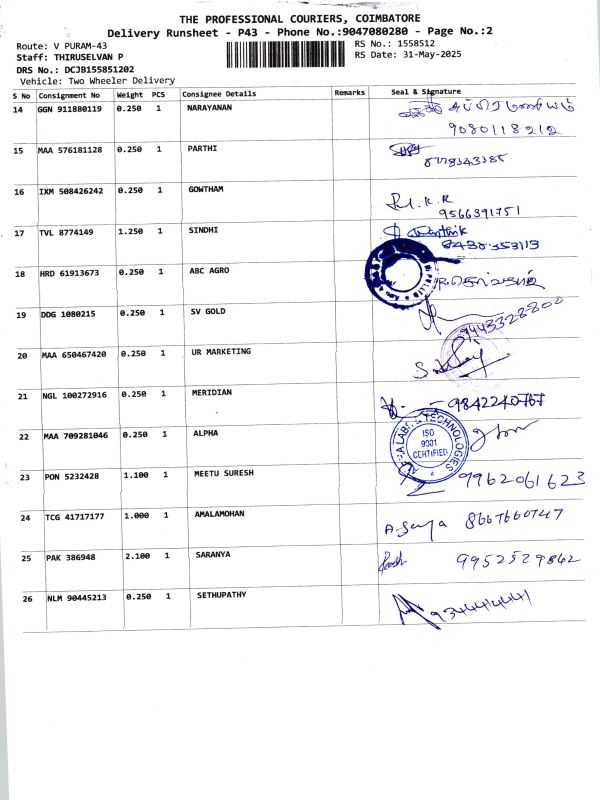 THE PROFESSIONAL COURIERS, COIMBATORE
Delivery Runsheet - P43 - Phone No.:9047080280 - Page No.:2
Route: V PURAM-43
RS No.: 1558512
Staff: THIRUSELVAN P
RS Date: 31-May-2025
DRS No.: DCJB155851202
Vehicle: Two Wheeler Delivery
S No Consignment No Weight PCS Consignee Details Remarks Seal & Signature
14 GGN 911880119 0.250 1 NARAYANAN
9080118212
15 MAA 576181128 0.250 1 PARTHI
16 IXM 508426242 0.250 1 GOWTHAM
9566391751
17 TVL 8774149 1.250 1 SINDHI
18 HRD 61913673 0.250 1 ABC AGRO
19 DDG 1080215 0.250 1 SV GOLD
20 MAA 650467420 0.250 1 UR MARKETING
21 NGL 100272916 0.250 1 MERIDIAN
9842240767
22 MAA 709281046 0.250 1 ALPHA
ALPHA LABS & TECHNOLOGIES
ISO
9001
CERTIFIED
23 PON 5232428 1.100 1 MEETU SURESH 9962061623
24 TCG 41717177 1.000 1 AMALAMOHAN 8667660747
25 PAK 386948 2.100 1 SARANYA 9952529862
26 NLM 90445213 0.250 1 SETHUPATHY